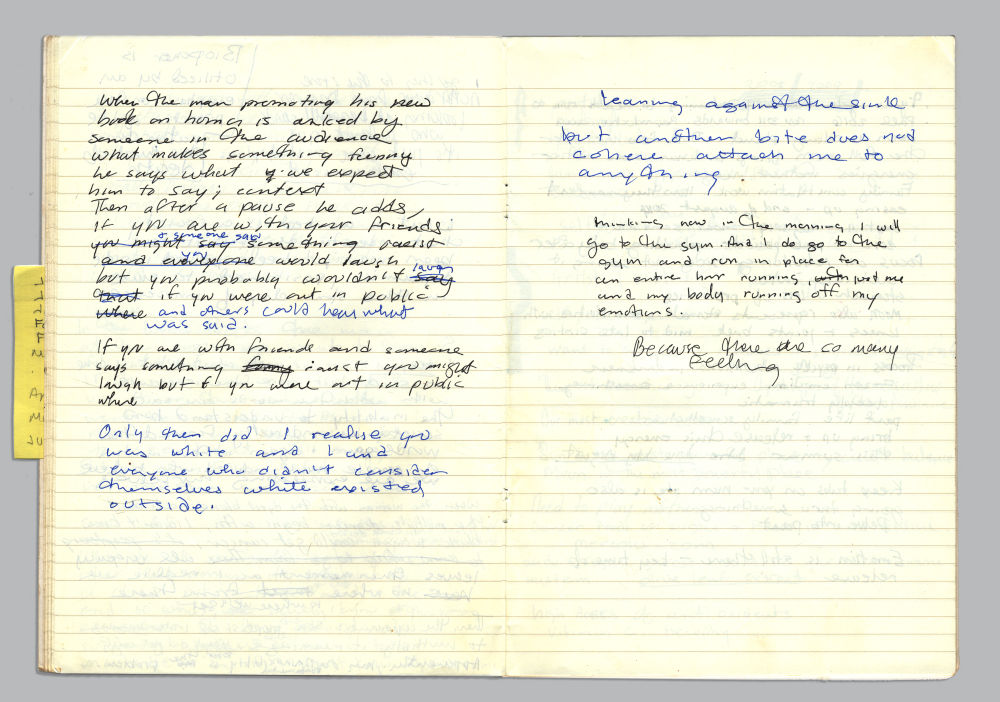 When the man promoting his new
book on humor is asked by
someone in the audience
what makes something funny
he says what we expect
him to say; context
Then after a pause he adds,
if you are with your friends
& someone said
you might say something racist
you
and everyone would laugh
but you probably wouldn't say laugh
that if you were out in public
where and others could hear what
was said.
If you are with friends and someone
says something funny racist you might
laugh but if you were out in public
where
Only then did I realize you
was white and I and
everyone who didn't consider
themselves white existed
outside.
leaning against the sink
but another bite does not
cohere attach me to
anything.
thinking now in the morning I will
go to the gym. And I do go to the
gym and run in place for
an entire hour running, with just me
and my body running off my
emotions.
Because there are so many
feeling